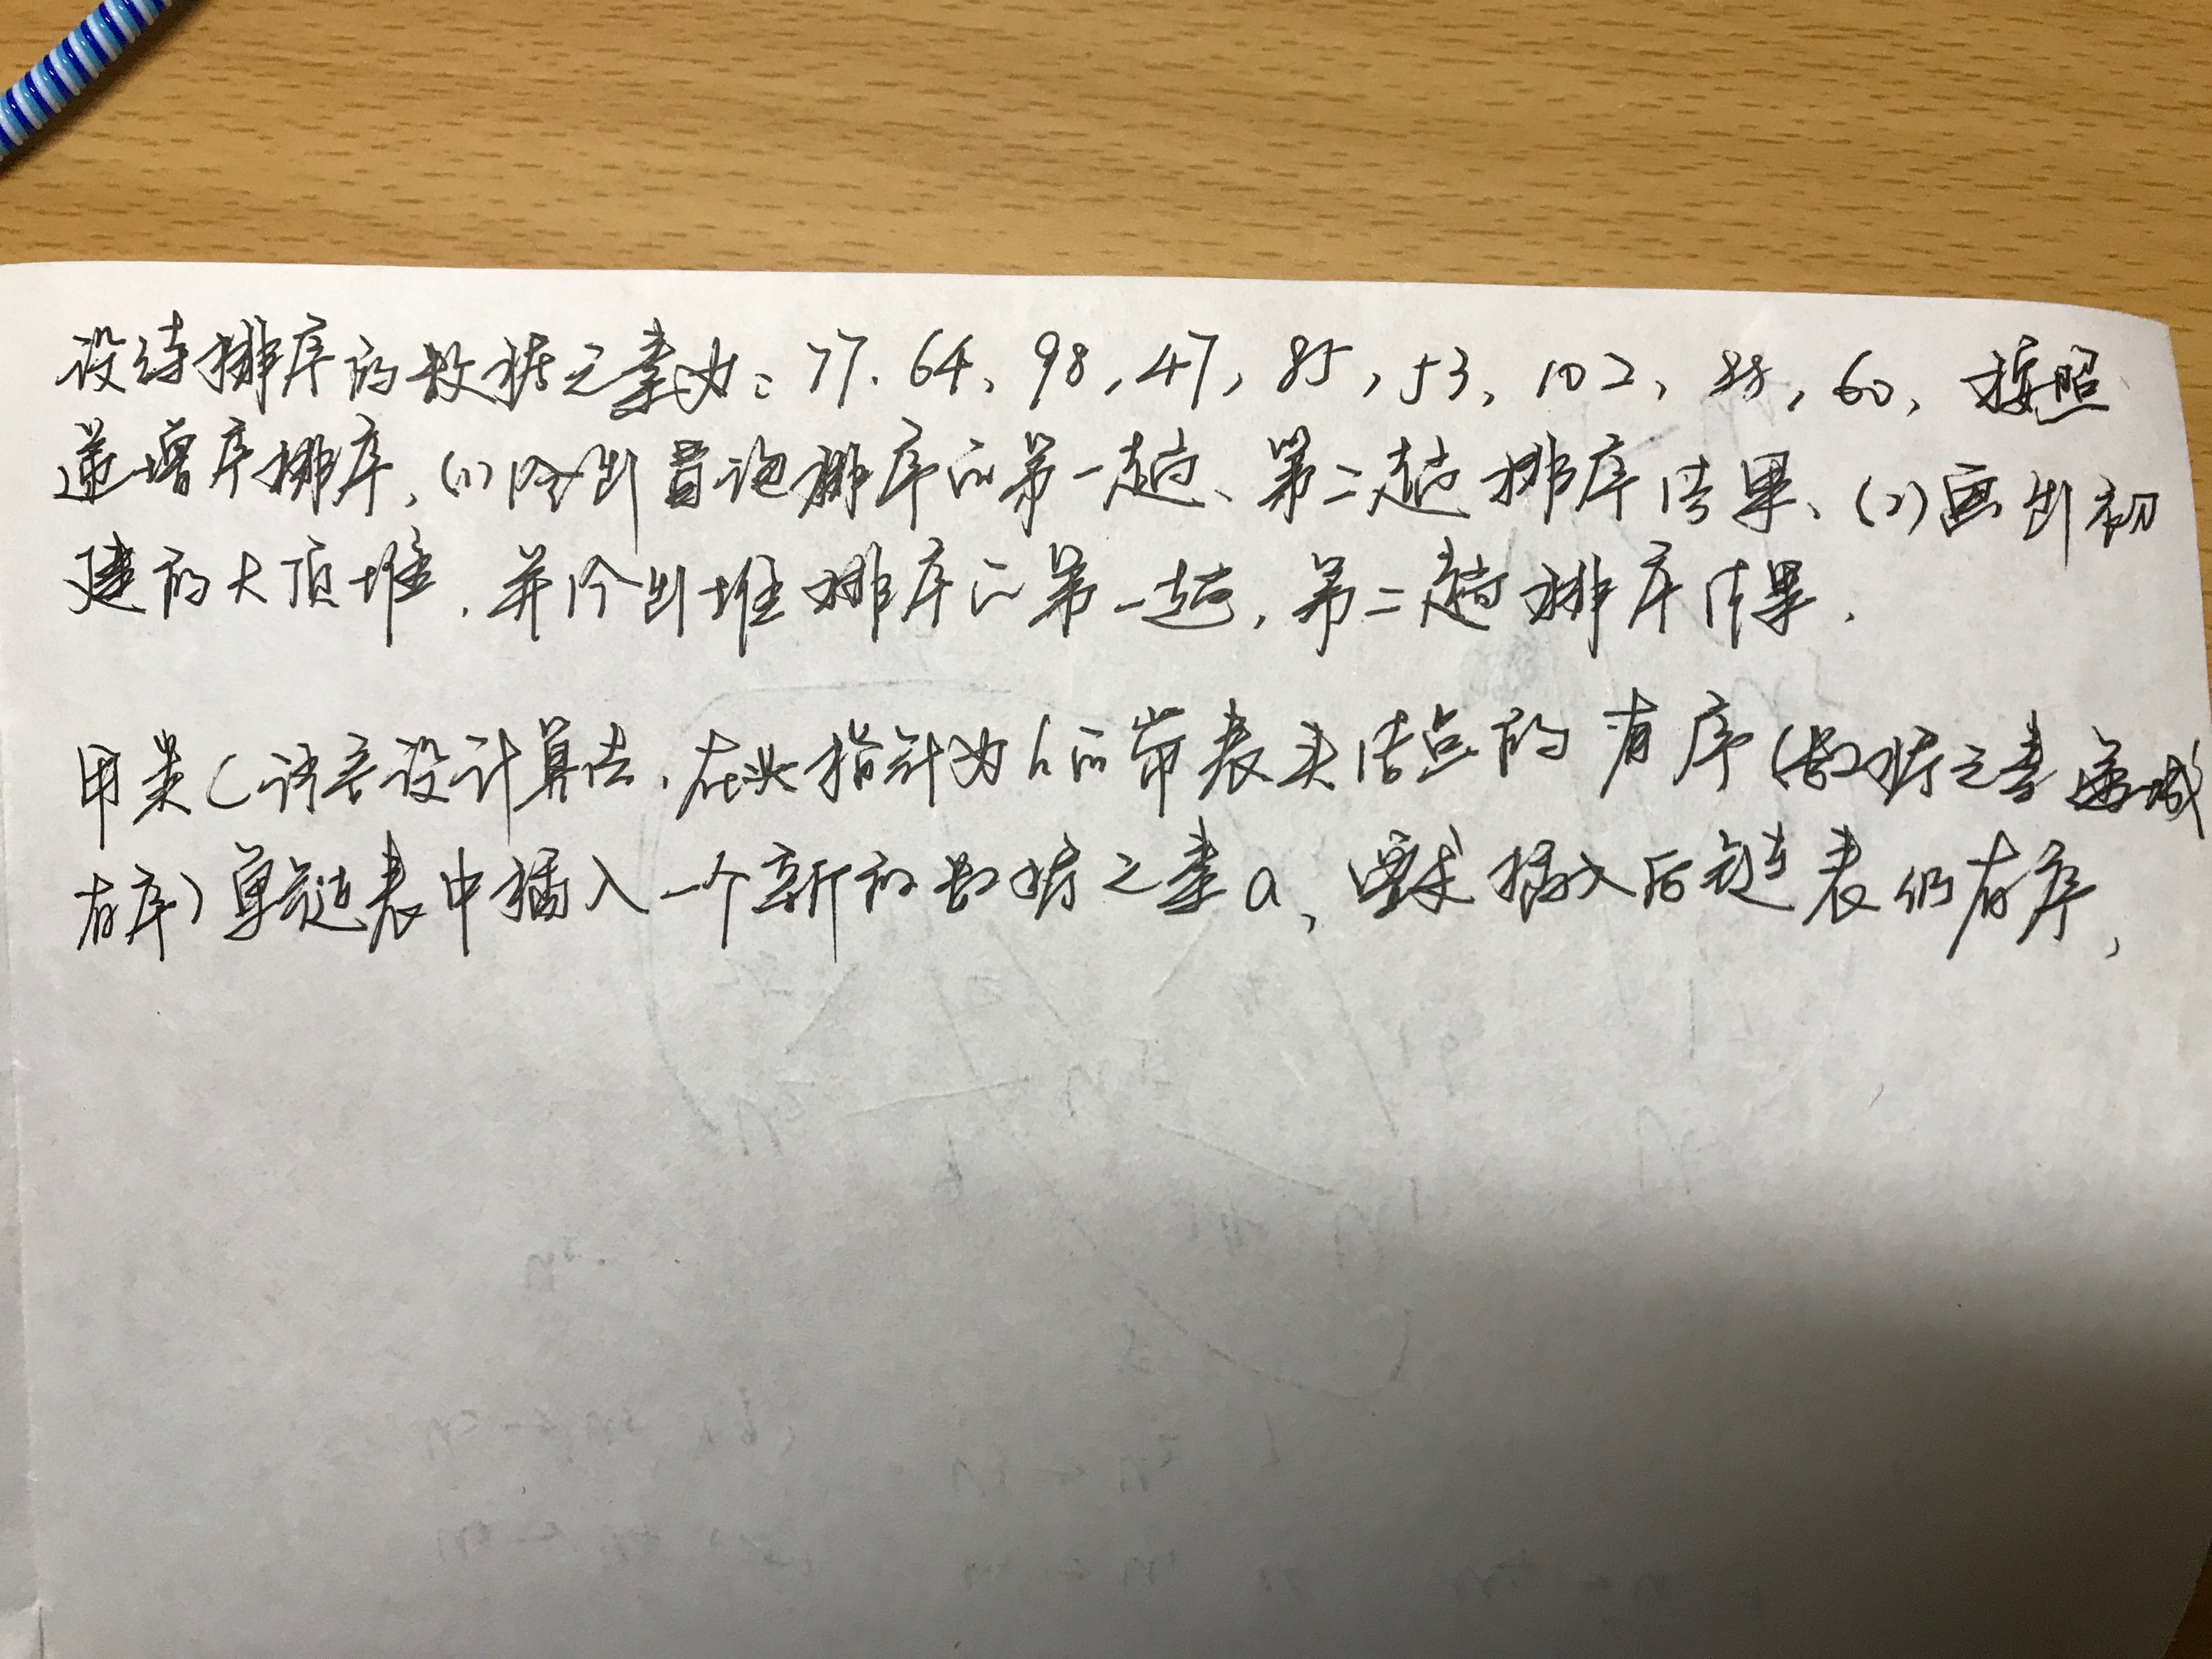 设待排序的数据元素为：77、64、98，47，85，53，102，38，60，按照
递增序排序，(1)给出冒泡排序的第一趟、第二趟排序结果、(2)画出初
建的大顶堆，并给出堆排序的第一趟，第二趟排序结果．
用类C语言设计算法，在头指针为h的带表头结点的有序(数据元素递减
有序)单链表中插入一个新的数据元素a，要求插入后链表仍有序，